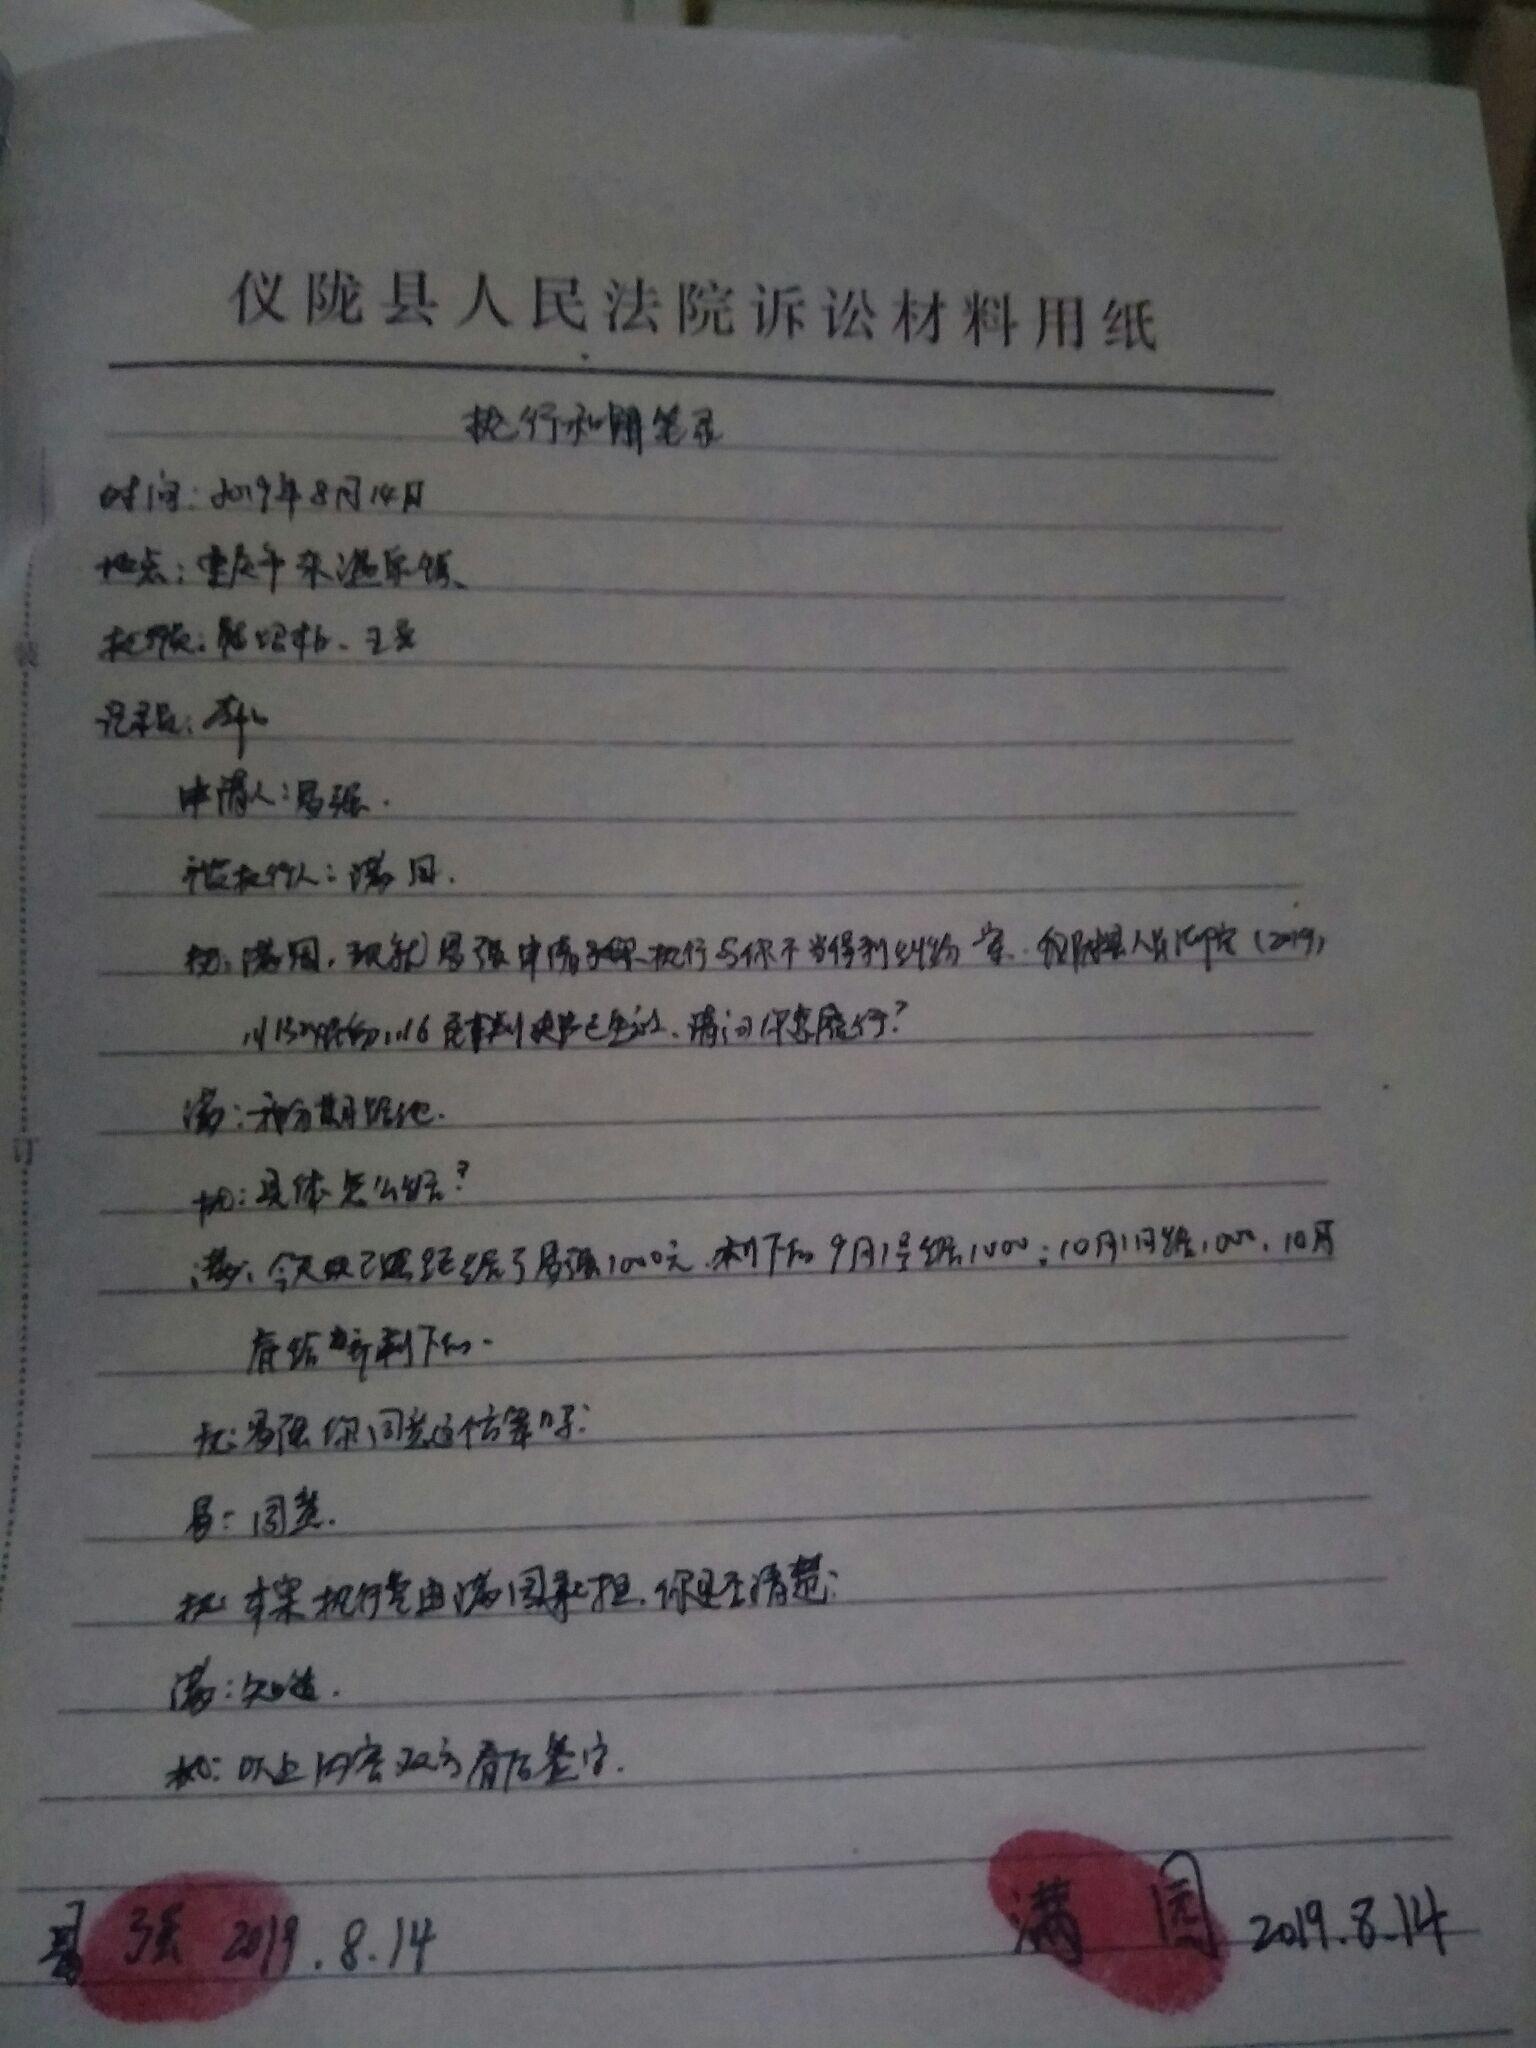 仪陇县人民法院诉讼材料用纸
执行和解笔录
时间：2019年8月14日
地点：重庆市
执行员：王
记录员：
申请人：易强.
被执行人：满园.
执：满园，现就易强申请执行与你不当得利纠纷一案. 仪陇县人民法院（2019）
川1324民初 民事判决书已生效、请问你怎么履行？
满：我分期给他.
执：具体怎么给？
满：今天我已经给了易强1000元，剩下的9月1号给1000；10月1日给1000，10月
底给齐剩下的.
执：易强你同意这个方案吗？
易：同意.
执：本案执行费由满园承担，你是否清楚：
满：知道.
执：以上内容双方看后签字.
易强 2019.8.14
满园 2019.8.14
装
订